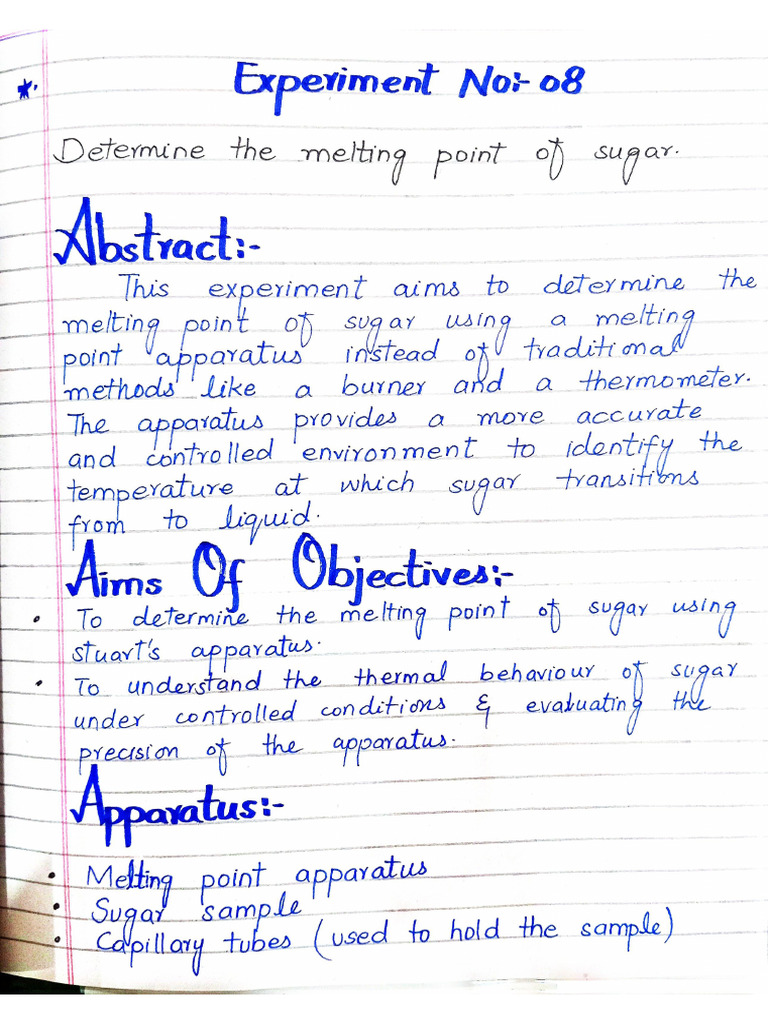 Experiment No:- 08
Determine the melting point of sugar.
Abstract:-
This experiment aims to determine the
melting point of sugar using a melting
point apparatus instead of traditional
methods like a burner and a thermometer.
The apparatus provides a more accurate
and controlled environment to identify the
temperature at which sugar transitions
from to liquid.
Aims Of Objectives:-
• To determine the melting point of sugar using
stuart's apparatus.
• To understand the thermal behaviour of sugar
under controlled conditions & evaluating the
precision of the apparatus.
Apparatus:-
• Melting point apparatus
• Sugar sample
• Capillary tubes (used to hold the sample)